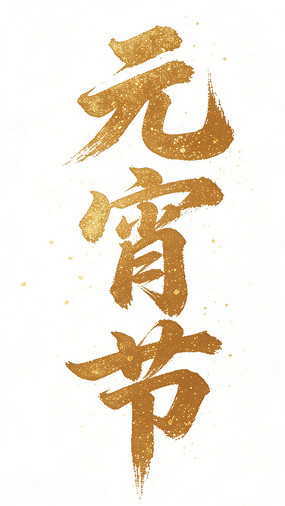 元宵节